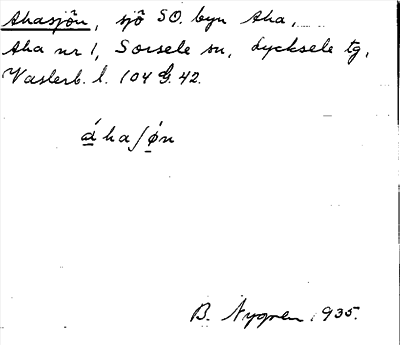 Ahasjön, sjö SO. byn Aha,
Aha nr 1, Sorsele sn, Lycksele tg,
Västerb. l. 104 G. 42.
áhaʃǿn
B. Nygren 1935.